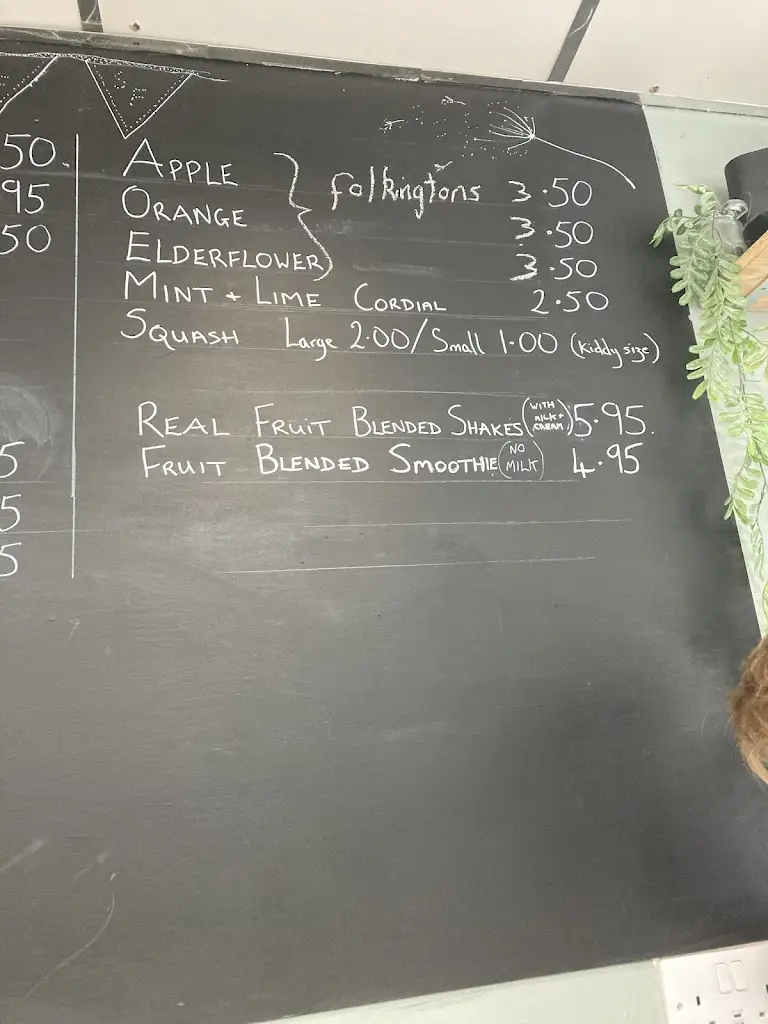 50.
95
50
5
5
5
APPLE folkingtons 3.50
ORANGE 3.50
ELDERFLOWER 3.50
MINT + LIME CORDIAL 2.50
SQUASH Large 2.00/Small 1.00 (Kiddy size)
REAL FRUIT BLENDED SHAKES (WITH MILK + CREAM) 5.95.
FRUIT BLENDED SMOOTHIE (NO MILK) 4.95